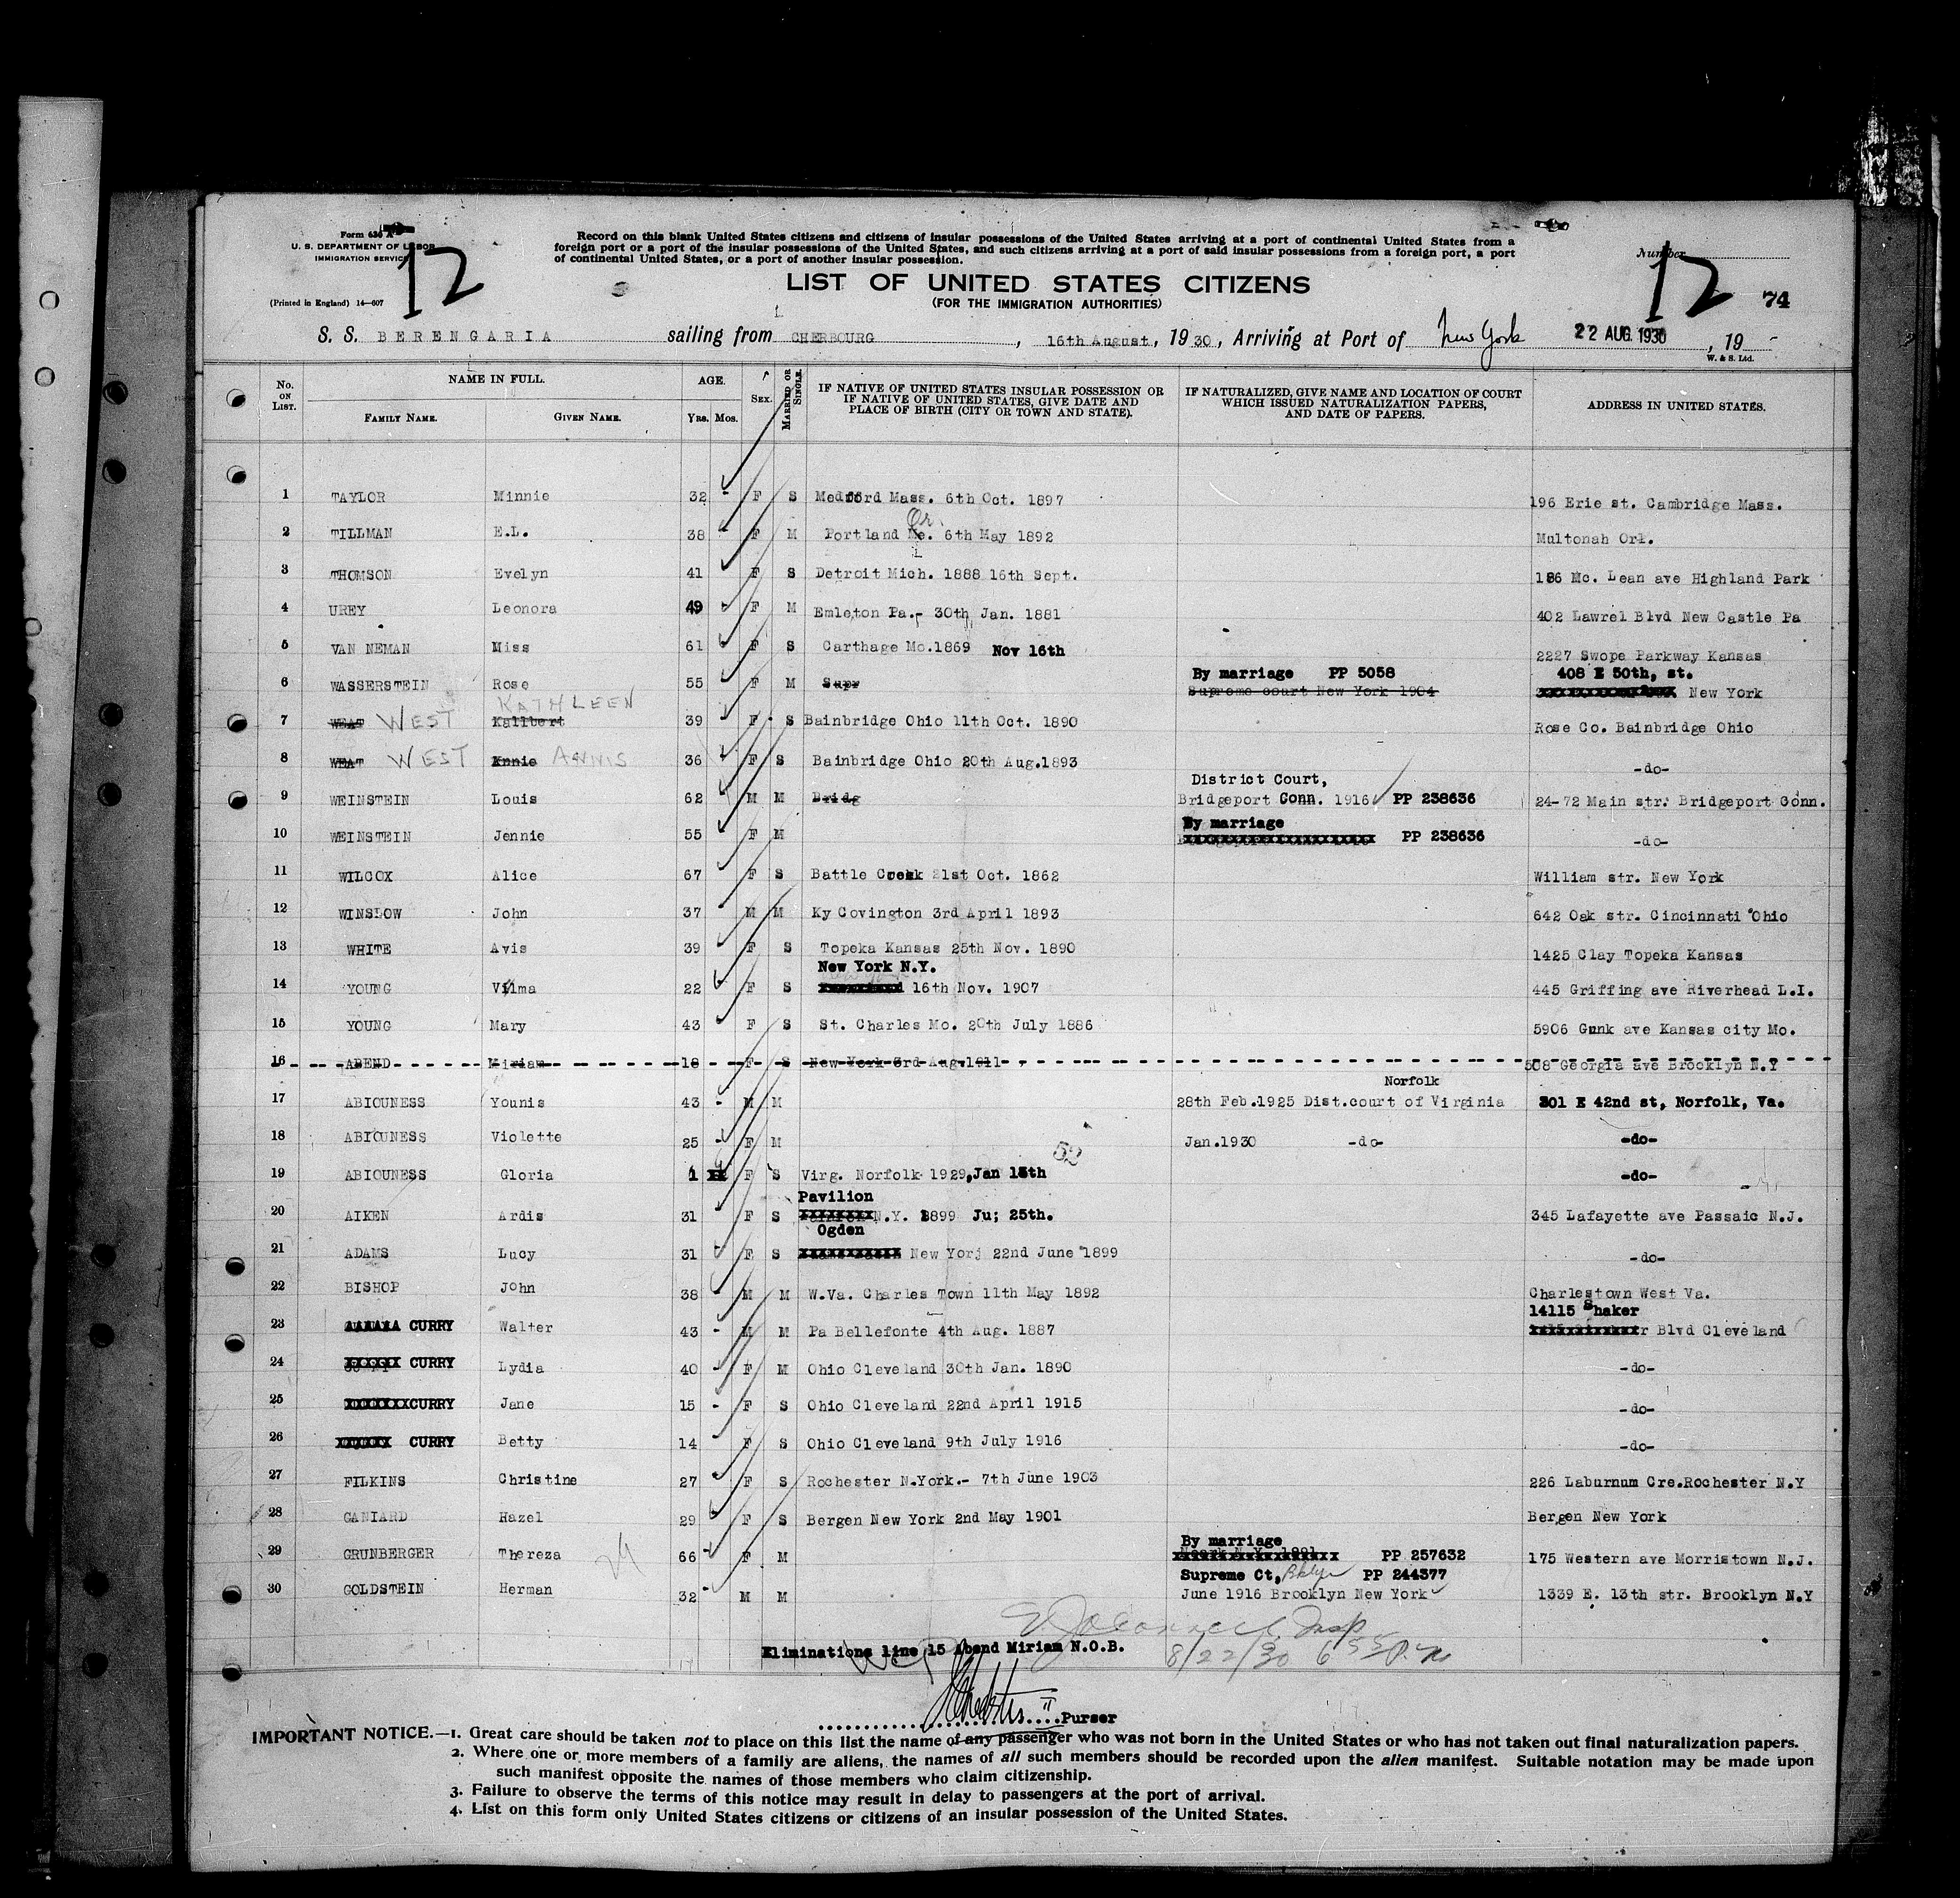 Form 630 A
U. S. DEPARTMENT OF LABOR
IMMIGRATION SERVICE
(Printed in England) 14—607
12
Record on this blank United States citizens and citizens of insular possessions of the United States arriving at a port of continental United States from a
foreign port or a port of the insular possessions of the United States, and such citizens arriving at a port of said insular possessions from a foreign port, a port
of continental United States, or a port of another insular possession.
LIST OF UNITED STATES CITIZENS
(FOR THE IMMIGRATION AUTHORITIES)
Number
12 74
S. S. BERENGARIA sailing from CHERBOURG, 16th August, 1930, Arriving at Port of New York 22 AUG 1930, 19
W. & S. Ltd.
No. ON LIST. NAME IN FULL. FAMILY NAME. GIVEN NAME. AGE. Yrs. Mos. SEX. MARRIED OR SINGLE. IF NATIVE OF UNITED STATES INSULAR POSSESSION OR IF NATIVE OF UNITED STATES, GIVE DATE AND PLACE OF BIRTH (CITY OR TOWN AND STATE). IF NATURALIZED, GIVE NAME AND LOCATION OF COURT WHICH ISSUED NATURALIZATION PAPERS, AND DATE OF PAPERS. ADDRESS IN UNITED STATES.
1 TAYLOR Minnie 32 - F S Medford Mass. 6th Oct. 1897 196 Erie st. Cambridge Mass.
Or.
2 TILLMAN E.L. 38 F M Portland Me. 6th May 1892 Multonah Orl.
3 THOMSON Evelyn 41 F S Detroit Mich. 1888 16th Sept. 186 Mc. Lean ave Highland Park
4 UREY Leonora 49 F M Emleton Pa.- 30th Jan. 1881 402 Lawrel Blvd New Castle Pa
5 VAN NEMAN Miss 61 F S Carthage Mo.1869 Nov 16th 2227 Swope Parkway Kansas
By marriage PP 5058 408 E 50th, st.
6 WASSERSTEIN Rose 55 F M Supr Supreme court New York 1904 New York
KATHLEEN
7 WEAT WEST Kallbert 39 F S Bainbridge Ohio 11th Oct. 1890 Rose Co. Bainbridge Ohio
8 WEAT WEST Annie ANNIS 36 F S Bainbridge Ohio 20th Aug.1893 -do-
District Court,
9 WEINSTEIN Louis 62 M M Bridg Bridgeport Conn. 1916 PP 238636 24-72 Main str. Bridgeport Conn.
By marriage
10 WEINSTEIN Jennie 55 F M PP 238636 -do-
11 WILCOX Alice 67 F S Battle Creek 21st Oct. 1862 William str. New York
12 WINSLOW John 37 M M Ky Covington 3rd April 1893 642 Oak str. Cincinnati Ohio
13 WHITE Avis 39 F S Topeka Kansas 25th Nov. 1890 1425 Clay Topeka Kansas
New York N.Y.
14 YOUNG Vilma 22 F S 16th Nov. 1907 445 Griffing ave Riverhead L.I.
15 YOUNG Mary 43 F S St. Charles Mo. 20th July 1886 5906 Gunk ave Kansas city Mo.
16 ABEND Miriam 18 F S New York 3rd Aug.1911 508 Georgia ave Brooklyn N.Y
Norfolk
17 ABIOUNESS Younis 43 - M M 28th Feb.1925 Dist.court of Virginia 301 E 42nd st, Norfolk, Va.
18 ABIOUNESS Violette 25 - F M Jan.1930 -do- -do-
52
19 ABIOUNESS Gloria 1 F S Virg. Norfolk 1929,Jan 13th -do-
Pavilion
20 AIKEN Ardis 31 F S N.Y. 1899 Ju; 25th. 345 Lafayette ave Passaic N.J.
Ogden
21 ADAMS Lucy 31 F S New Yorj 22nd June 1899 -do-
22 BISHOP John 38 M M W.Va. Charles Town 11th May 1892 Charlestown West Va.
14115 Shaker
23 CURRY Walter 43 - M M Pa Bellefonte 4th Aug. 1887 r Blvd Cleveland
24 CURRY Lydia 40 - F M Ohio Cleveland 30th Jan. 1890 -do-
25 CURRY Jane 15 - F S Ohio Cleveland 22nd April 1915 -do-
26 CURRY Betty 14 F S Ohio Cleveland 9th July 1916 -do-
27 FILKINS Christine 27 F S Rochester N.York.- 7th June 1903 226 Laburnum Cre.Rochester N.Y
28 GANIARD Hazel 29 F S Bergen New York 2nd May 1901 Bergen New York
By marriage
29 GRUNBERGER Thereza 66 F M PP 257632 175 Western ave Morristown N.J.
Supreme Ct, Bklyn PP 244377
30 GOLDSTEIN Herman 32 M M June 1916 Brooklyn New York 1339 E. 13th str. Brooklyn N.Y
Insp
Eliminations line 15 Abend Miriam N.O.B. 8/22/30 6 55 P.M
Purser
IMPORTANT NOTICE.—1. Great care should be taken not to place on this list the name of any passenger who was not born in the United States or who has not taken out final naturalization papers.
2. Where one or more members of a family are aliens, the names of all such members should be recorded upon the alien manifest. Suitable notation may be made upon
such manifest opposite the names of those members who claim citizenship.
3. Failure to observe the terms of this notice may result in delay to passengers at the port of arrival.
4. List on this form only United States citizens or citizens of an insular possession of the United States.